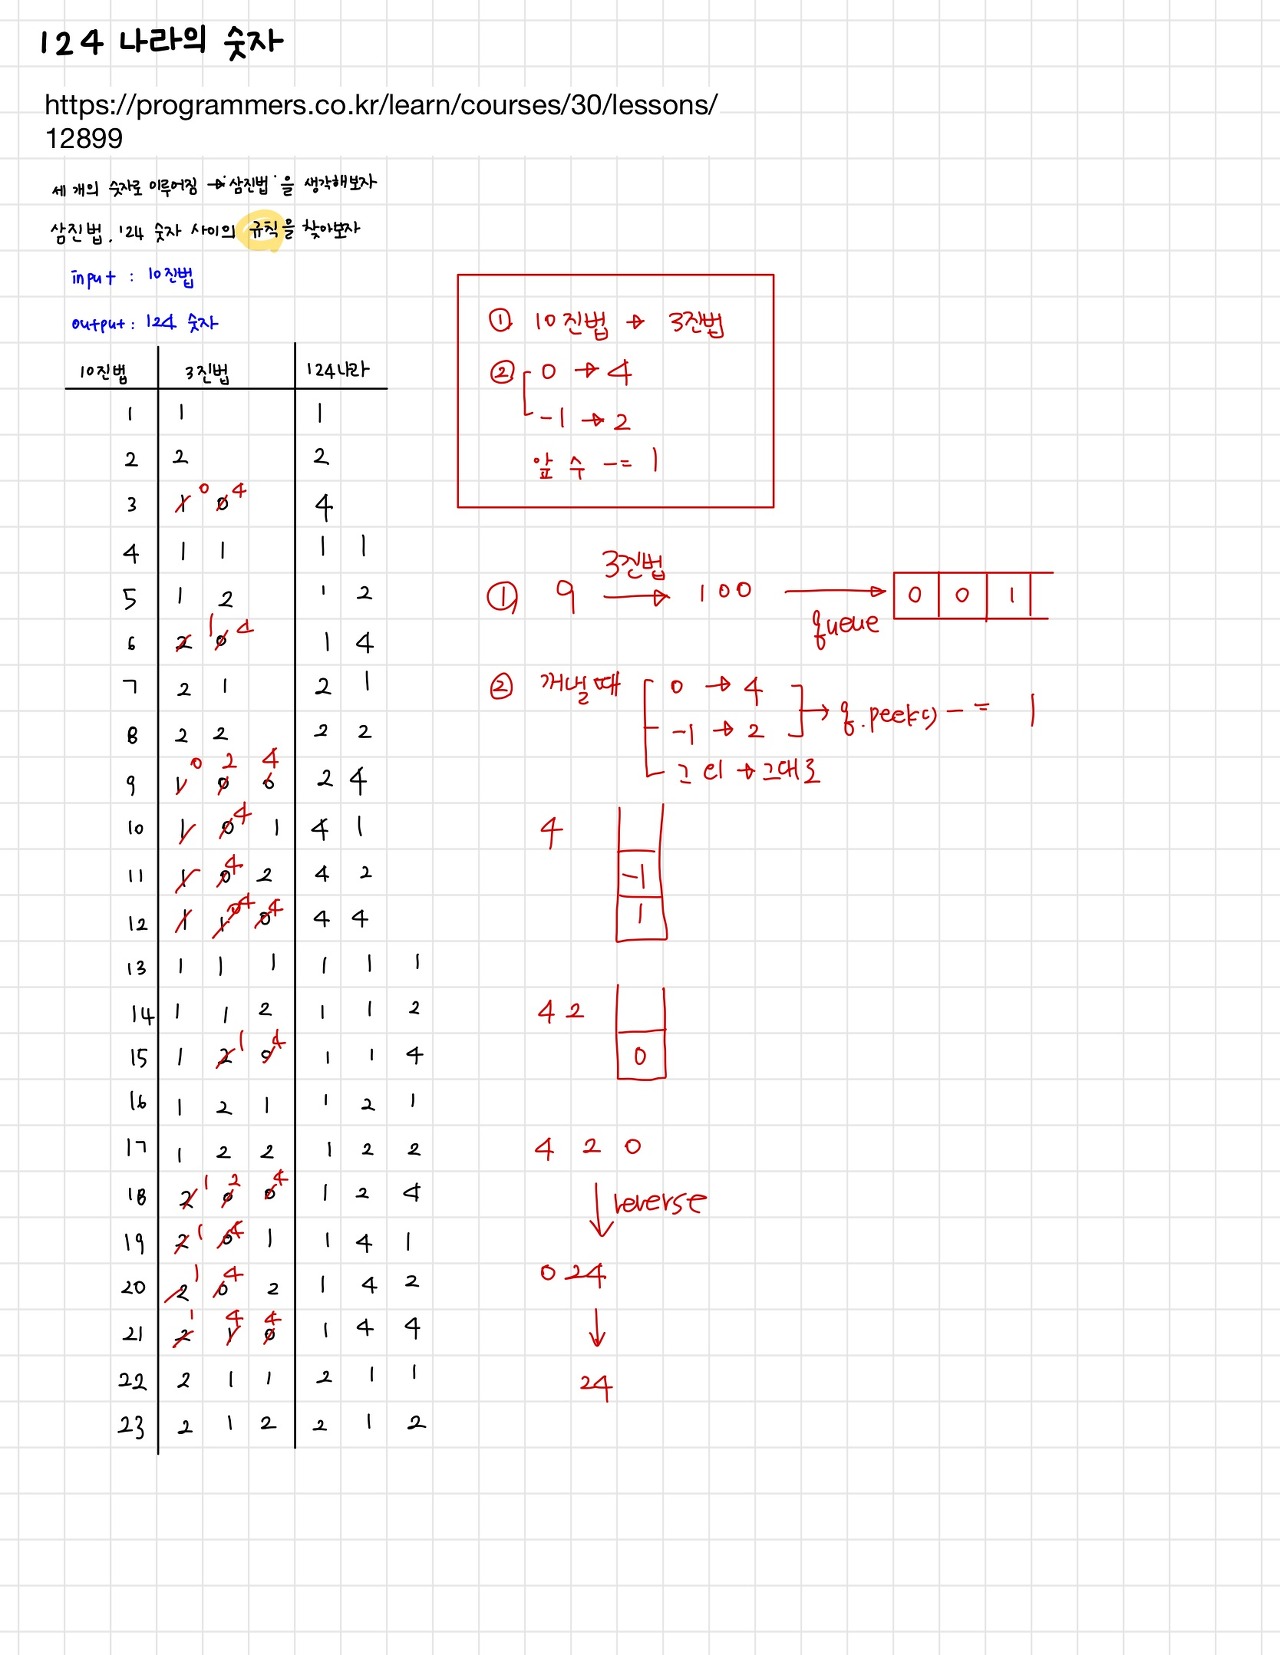 124 나라의 숫자
https://programmers.co.kr/learn/courses/30/lessons/
12899
세 개의 숫자로 이루어짐 → '삼진법' 을 생각해보자
삼진법, 124 숫자 사이의 규칙을 찾아보자
input : 10진법
output : 124 숫자
10진법 3진법 124나라
1 1 1
2 2 2
3 1 0 0 4 4
4 1 1 1 1
5 1 2 1 2
6 2 1 0 4 1 4
7 2 1 2 1
8 2 2 2 2
9 1 0 0 2 0 4 2 4
10 1 0 4 1 4 1
11 1 0 4 2 4 2
12 1 1 0 4 0 4 4 4
13 1 1 1 1 1 1
14 1 1 2 1 1 2
15 1 2 1 0 4 1 1 4
16 1 2 1 1 2 1
17 1 2 2 1 2 2
18 2 1 0 2 0 4 1 2 4
19 2 1 0 4 1 1 4 1
20 2 1 0 4 2 1 4 2
21 2 1 1 4 0 4 1 4 4
22 2 1 1 2 1 1
23 2 1 2 2 1 2
① 10진법 → 3진법
② 0 → 4
-1 → 2
앞 수 -= 1
① 9 3진법 → 100 → queue 0 0 1
② 꺼낼때 0 → 4
-1 → 2 → q.peek() -= 1
그 외 → 그대로
4 -1
1
4 2 0
4 2 0
reverse
0 2 4
24